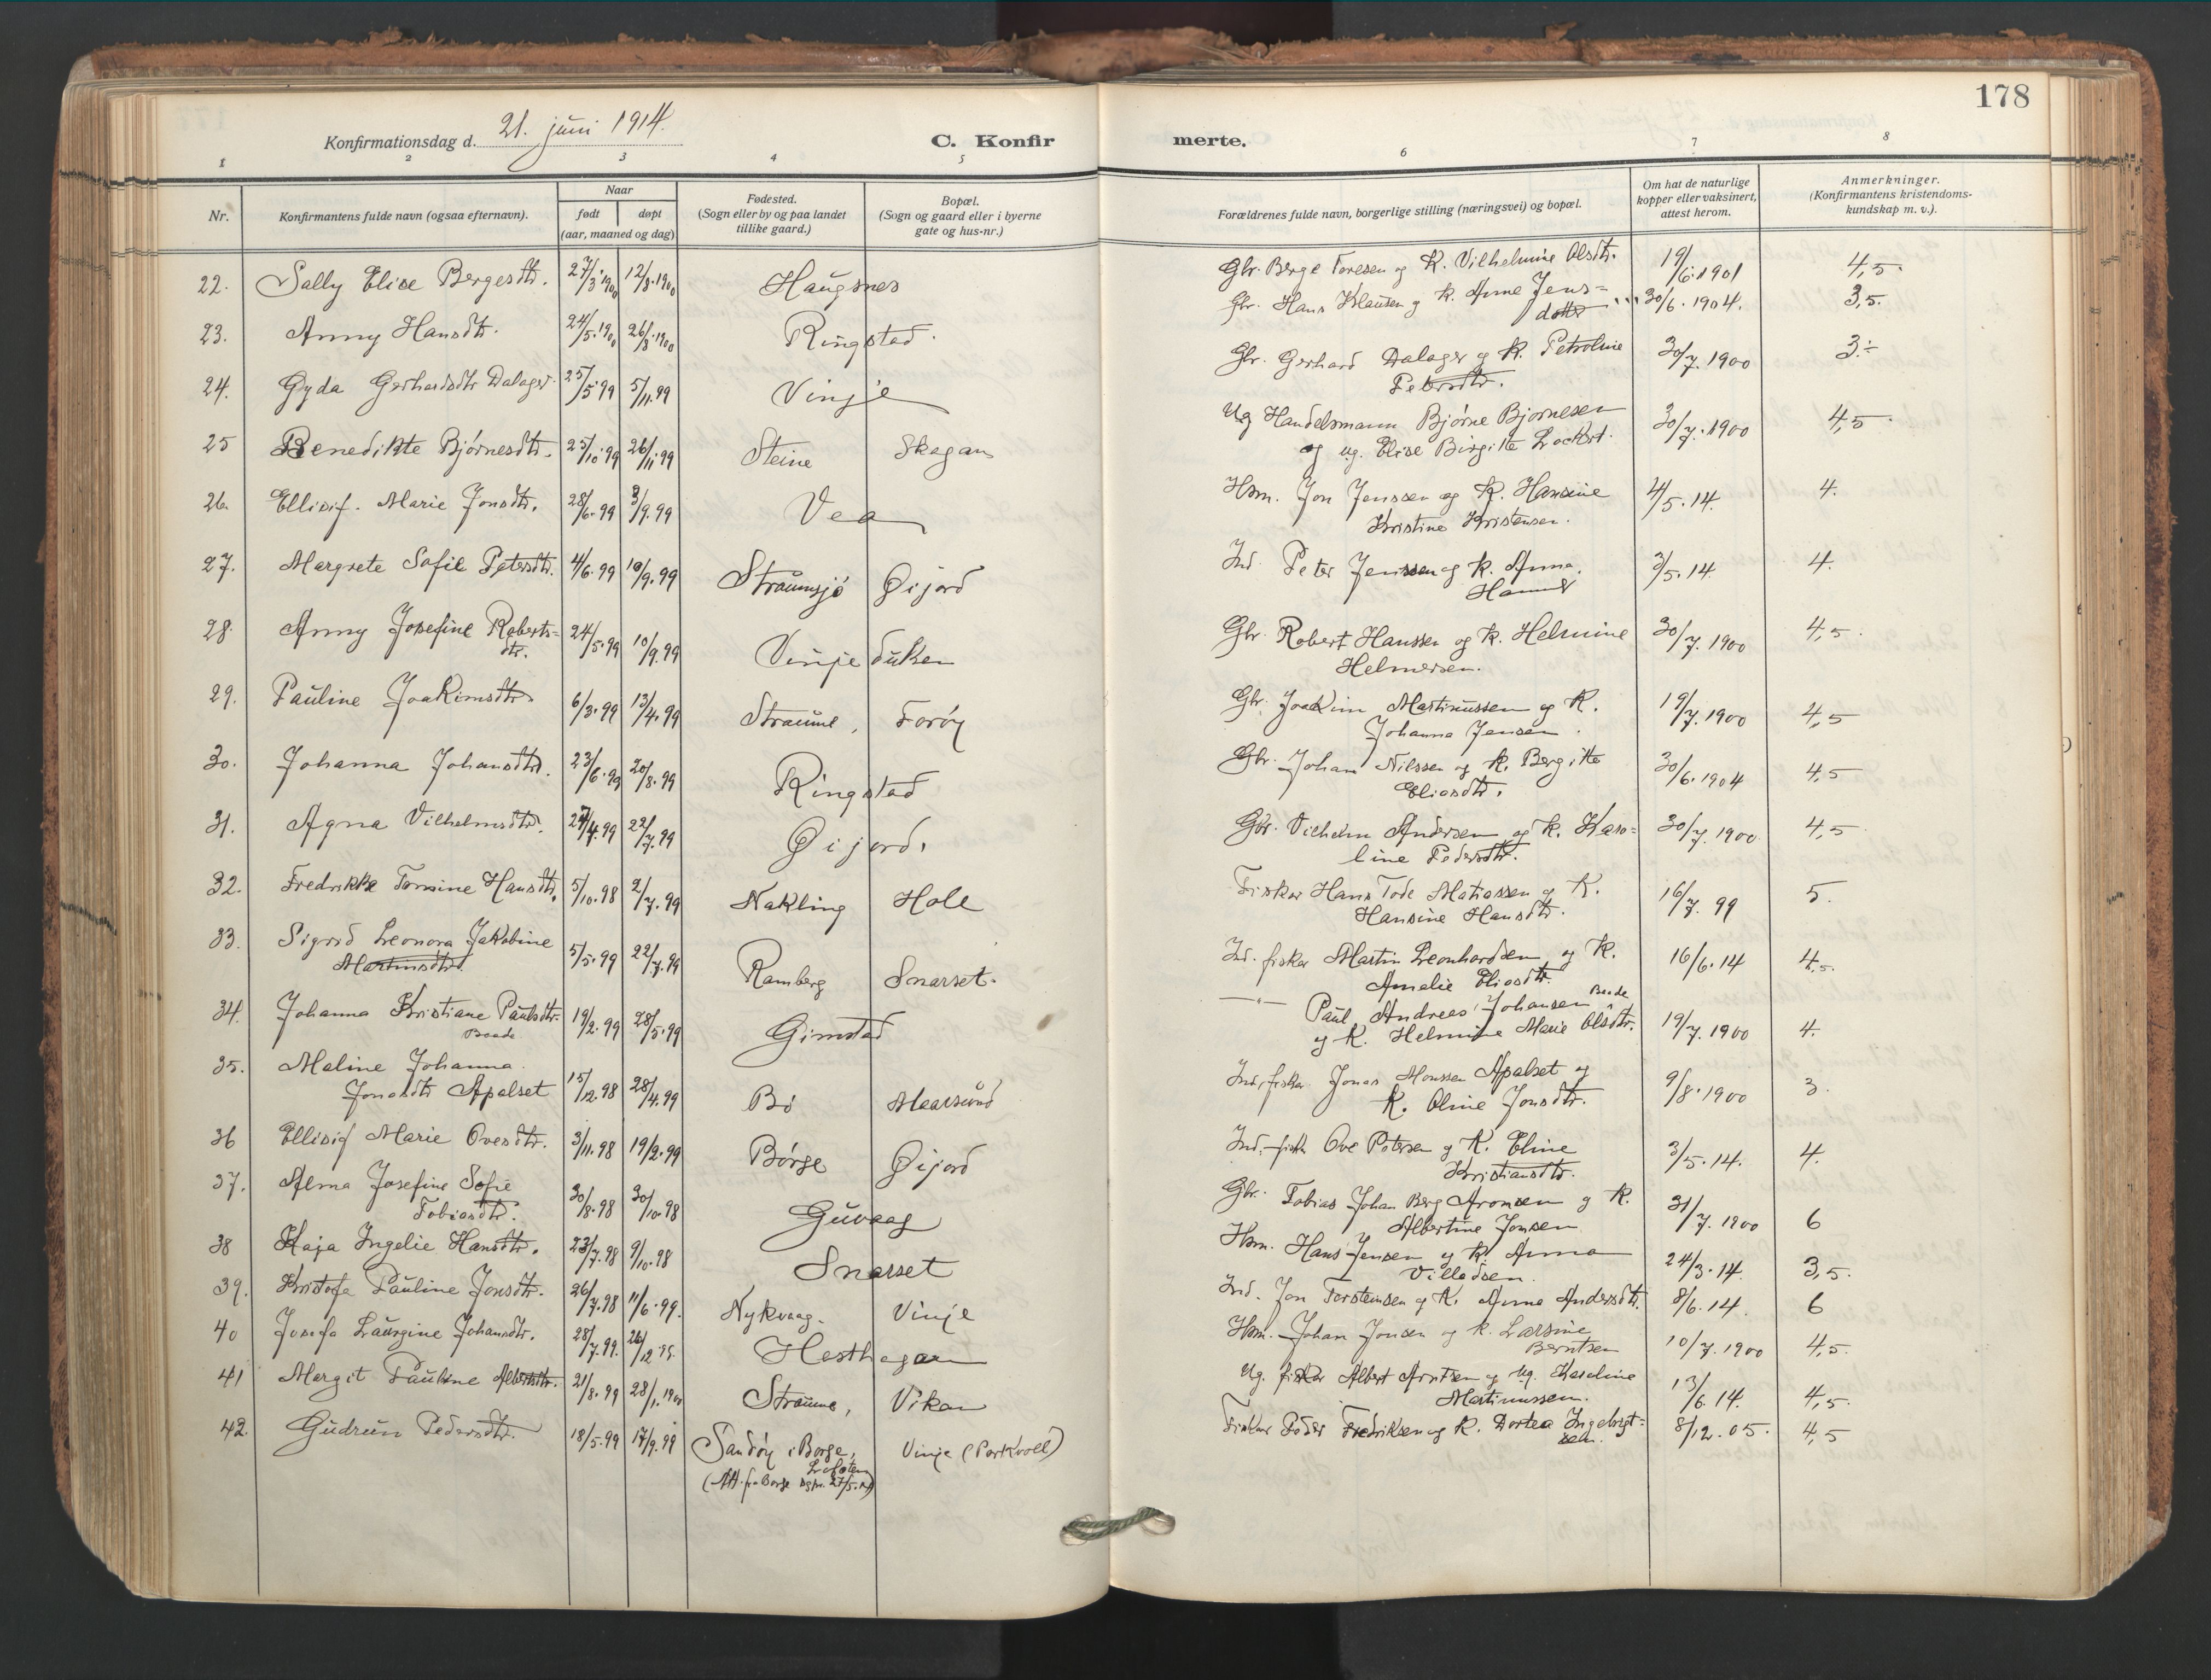 178
Konfirmationsdag d. 21. juni 1914.
C. Konfir
merte.
1 2 3 4 5 6 7 8
Nr.
Konfirmantens fulde navn (ogsaa efternavn).
Naar
født
døpt
(aar, maaned og dag)
Fødested.
(Sogn eller by og paa landet
tillike gaard.)
Bopæl.
(Sogn og gaard eller i byerne
gate og hus-nr.)
Forældrenes fulde navn, borgerlige stilling (næringsvei) og bopæl.
Om hat de naturlige
kopper eller vaksinert,
attest herom.
Anmerkninger.
(Konfirmantens kristendoms-
kundskap m. v.).
22. Sally Elise Bergesdtr. 27/3.1900 12/8.1900 Haugsnes Gbr. Berge Toresen og K. Vilhelmine Olsdtr. 19/6.1901 4,5.
23. Anny Hansdtr. 24/5.1900 26/8.1900 Ringstad. Gbr. Hans Klausen og K. Anne Jens=
dotter 30/6.1904. 3,5.
24. Gyda Gerhardsdtr Dalager 25/5.99 5/11.99 Vinje Gbr. Gerhard Dalager og K. Petroline
Petersdtr. 30/7.1900 3.÷
25 Benedikte Bjørnesdtr. 25/10.99 26/11.99 Steine Skagan Ug Handelsmann Bjørne Bjørnesen
og ug. Elise Birgitte Lockert. 30/7.1900 4,5.
26. Ellisif. Marie Jonsdtr. 28/6.99 3/9.99 Vea Hsm. Jon Jenssen og K. Hansine
Kristine Kristensen. 4/5.14. 4.
27. Margrete Sofie Petersdtr. 4/6.99 10/9.99 Straumsjø Øijord Ind. Peter Jenssen og K. Anna.
3/5.14. 4.
28. Anny Josefine Roberts=
dtr. 24/5.99 10/9.99 Vinjeduken Gbr. Robert Hanssen og K. Helmine
Helmersen. 30/7.1900 4,5.
29. Pauline Joakimsdtr. 6/3.99 13/4.99 Straume, Forøy Gbr. Joakim Martinussen og K.
Johanna Jensen. 19/7.1900 4,5
30. Johanna Johansdtr. 23/6.99 20/8.99 Ringstad Gbr. Johan Nilssen og K. Bergitte
Eliasdtr. 30/6.1904 4,5
31. Agna Vilhelmsdtr. 27/4.99 22/7.99 Øijord. Gbr. Vilhelm Andersen og K. Karo=
line Pedersdtr. 30/7.1900. 4,5
32. Fredrikke Tomine Hansdtr. 5/10.98 2/7.99 Nakling Hole Fisker Hans Tode Matiassen og K.
Hansine Hansdtr. 16/7.99 5.
33. Sigrid Leonora Jakobine
Martinsdtr. 5/5.99 22/7.99 Ramberg Snarset. Ind. fisker Martin Leonhardsen og K.
Amalie Eliasdtr. 16/6.14 4,5.
34. Johanna Kristiane Paulsdtr.
19/2.99 28/5.99 Gimstad —"— Paul Andreas Johansen
og K. Helmine Marie Olsdtr. 19/7.1900 4.
35. Maline Johanna
Jonasdtr Apalset 15/12.98 28/4.99 Bø Maarsund Ind, fisker Jonas Monssen Apalset og
K. Oline Jonsdtr. 9/8.1900 3.
36 Ellisif Marie Ovesdtr. 3/11.98 19/2.99 Børge Øijord Ind. fisk Ove Petersen og K. Eline
Kristiansdtr. 3/5.14. 4.
37. Alma Josefine Sofie
Tobiasdtr. 30/8.98 30/10.98 Guvaag Gbr. Tobias Johan Berg Aronsen og K.
Albertine Jonsen 31/7.1900 6
38 Kaja Ingelie Hansdtr. 23/7.98 9/10.98 Snarset Hsm. Hans Jensen og K. Anna
Villadsen. 24/3.14. 3,5.
39. Kristofa Pauline Jonsdtr. 26/7.98 11/6.99. Nykvaag. Vinje Ind. Jon Torsteinsen og K. Anne Andersdtr. 8/6.14. 6
40 Josefa Laurgine Johansdtr. 28/7.99. 26/12 Hesthagan Hsm. Johan Jonsen og K. Larsine
Berntsen 10/7.1900 4,5.
41 Margit Pauline Albertsdtr. 21/8.99 28/1.1900 Straume, Vikan Ug. fisker Albert Arntsen og ug. Karoline
Martinussen. 13/6.14. 4,5.
42. Gudrun Pedersdtr. 18/5.99 17/9.99 Sandøy i Borge,
Lofoten
(Att. fra Borge sgpr. 27/5.14) Vinje (Parkvoll) Fisker Peder Fredriksen og K. Dortea Ingebrigt=
sen. 8/12.05. 4,5